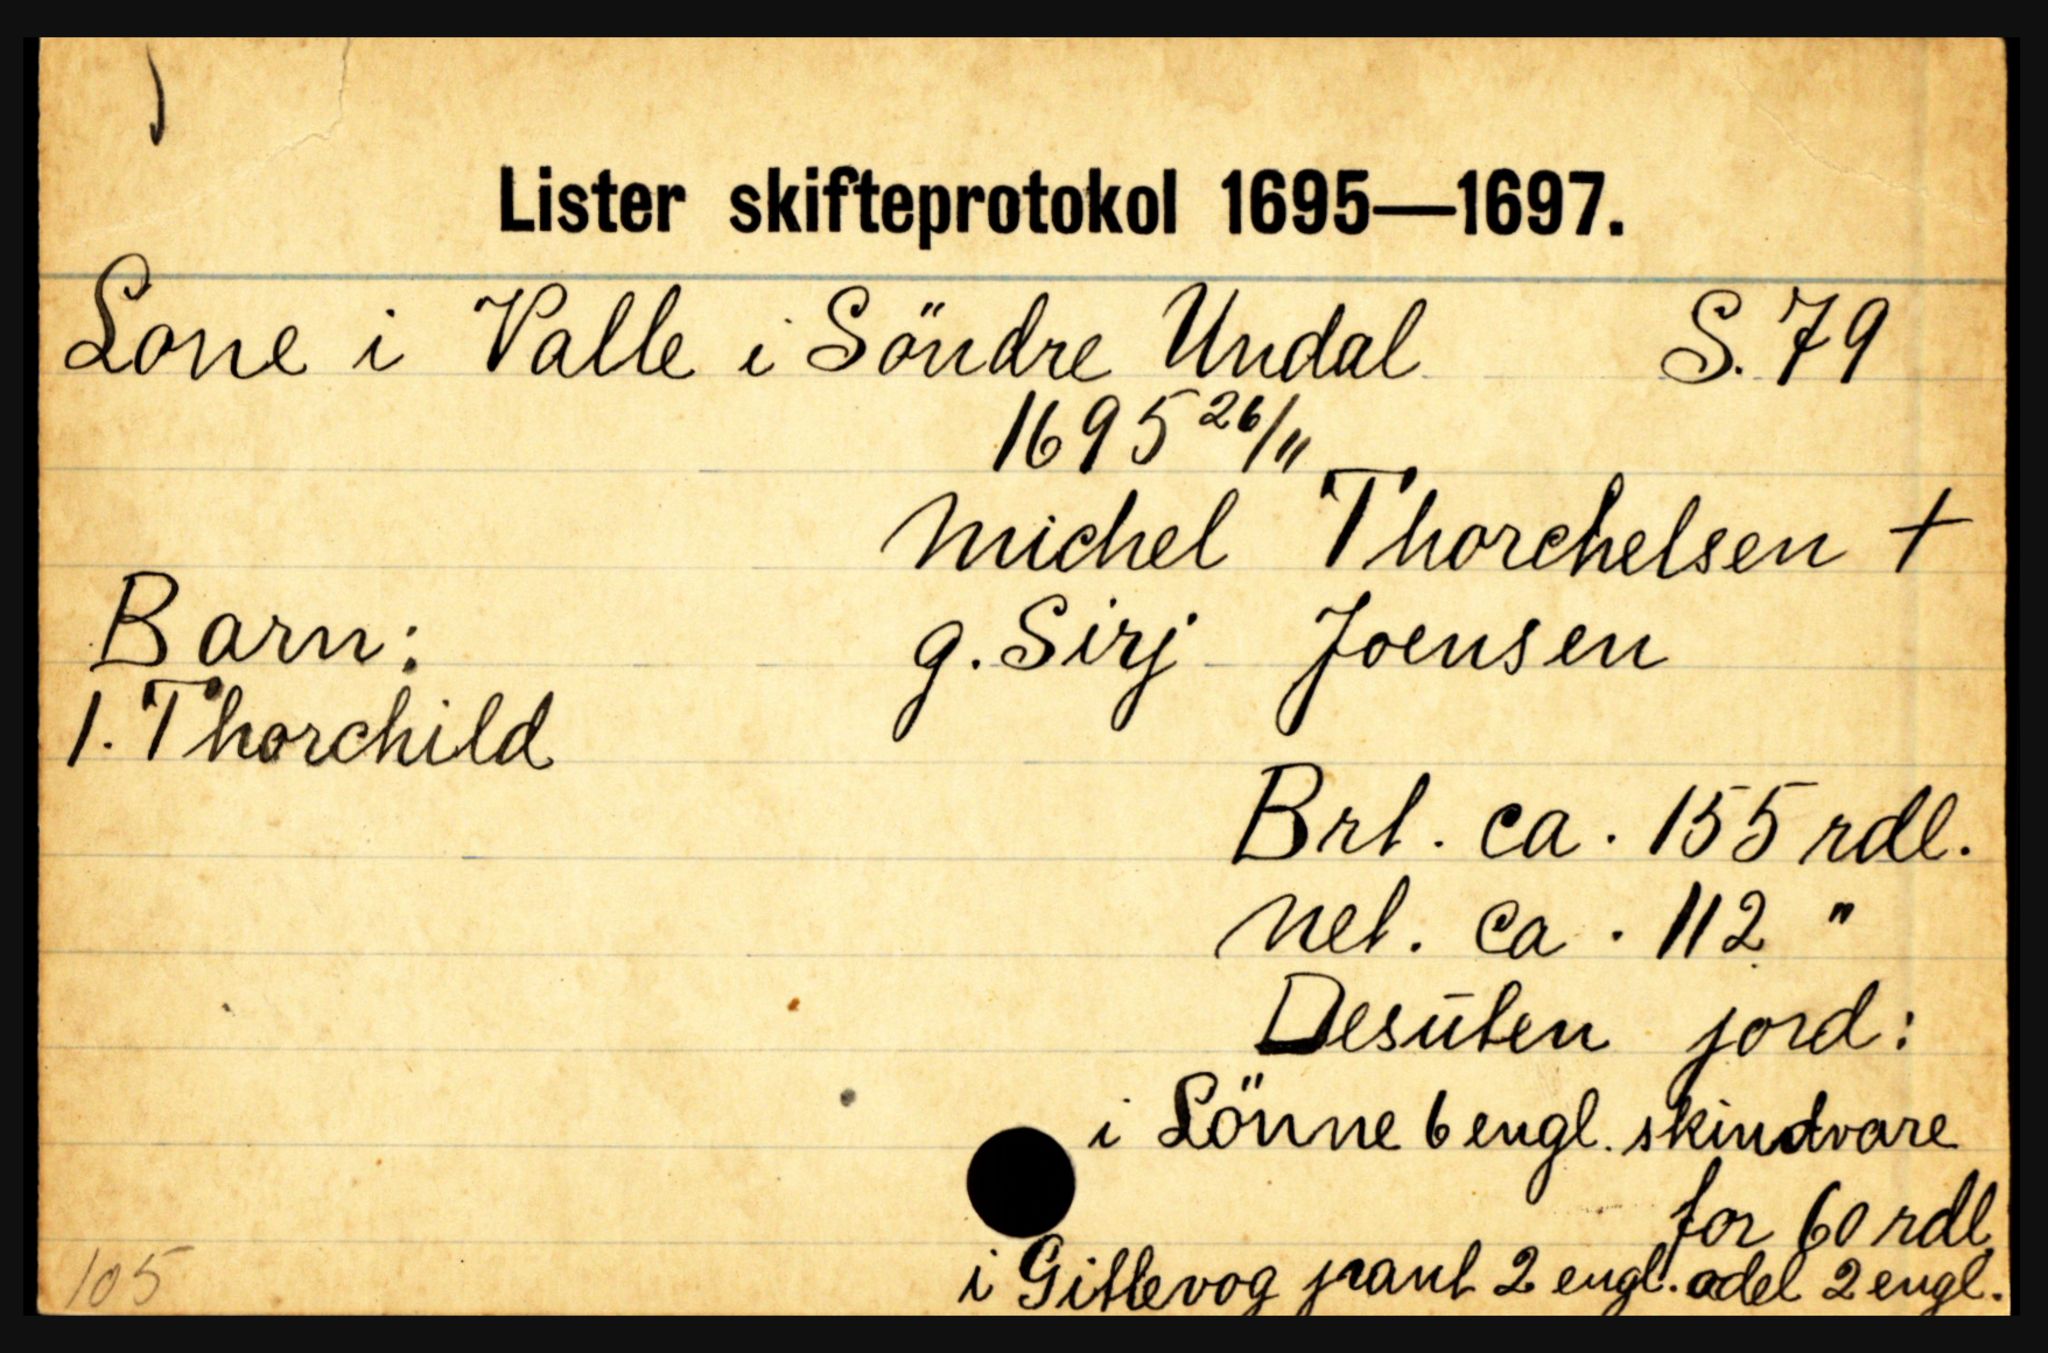 Lister skifteprotokol 1695—1697.
Lone i Valle i Söndre Undal S. 79
1695 26/11
Michel Thorchelsen +
Barn: g. Sirj Joensen
1. Thorchild
Brt. ca. 155 rdl.
Net. ca. 112 "
Desūten jord:
i Lönne 6 engl. skindvare
for 60 rdl.
i Gittevog pant 2 engl. odel 2 engl.
105